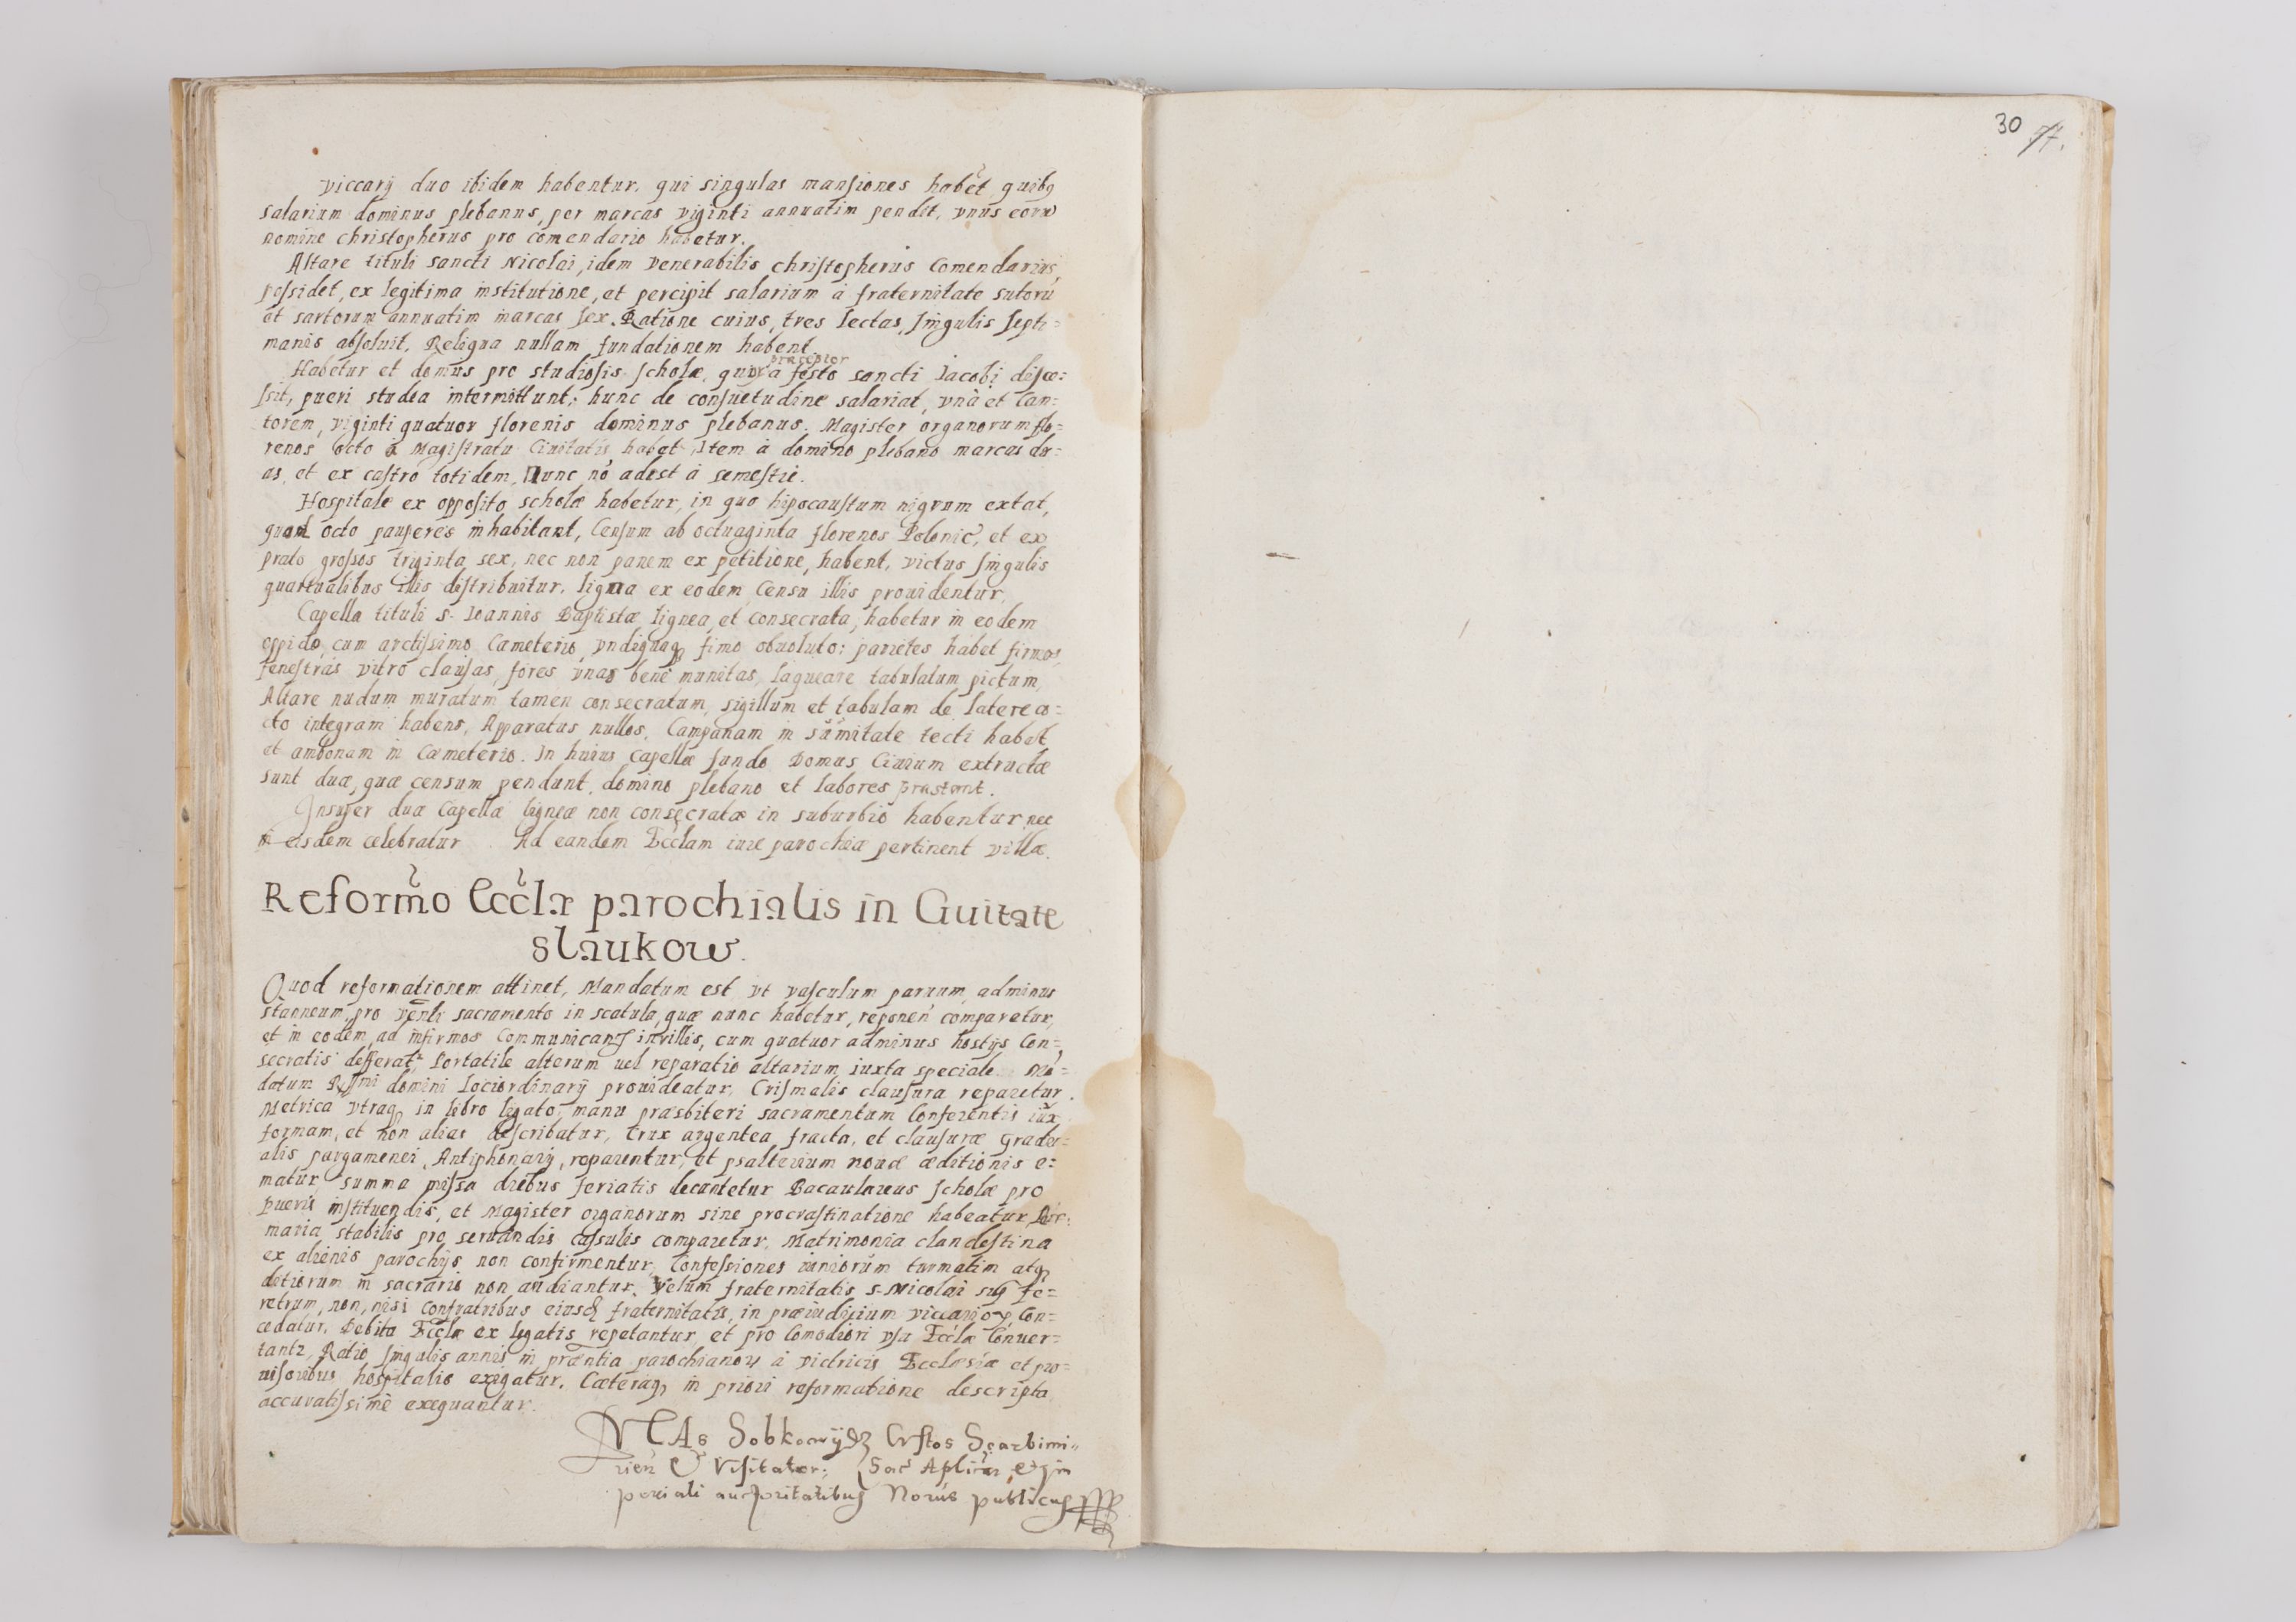 viccarij duo ibidem habentur, qui singulas mansiones habēt quibq
salarium dominus plebanus, per marcas viginti annuatim pendit, vnus eorū
nomine christopherus pro comendario habetur.
Altare tituli sancti Nicolai, idem venerabilis christopherus Comendarius,
possidet, ex legitima institutione, et percipit salarium à fraternitate sutorū
et sartorum annuatim marcas sex. Ratione cuius, tres lectas, singulis septi=
manis absoluit. Reliqua nullam fundationem habent.
praeceptor
Habetur et domus pro studiosis scholæ, quia à festo sancti Jacobi disce=
ssit, pueri studia intermittunt; hunc de consuetudine salariat, vnà et Can=
torem, viginti quatuor florenis dominus plebanus. Magister organorum flo=
renos octo à Magistratu Ciuitatis habet. Item à domino plebano marcas du=
as, et ex castro totidem, Nunc nō adest à semestrè.
Hospitale ex opposito scholæ habetur, in quo hipocaustum nigrum extat,
quod octo pauperes inhabitant, Censum ab octuaginta florenos Polonic, et ex
prato grossos triginta sex, nec non panem ex petitione, habent, victus singulis
quartualibus illis distribuitur, ligna ex eodem Censu illis prouidentur.
Capella tituli S. Ioannis Baptistæ lignea, et consecrata, habetur in eodem
oppido, cum arctissimo Cæmeterio, vndiquaq fimo obuoluto: parietes habet firmos,
fenestras vitro clausas, fores vnas benè munitas, laqueare tabulatum pictum,
Altare nudum muratum tamen consecratum, sigillum et tabulam de latere co=
cto integram habens, Apparatus nullos, Campanam in sūmitate tecti habet
et ambonam in Cæmeterio. In huius Capellæ fundo Domus Ciuium extructæ
sunt duæ, quæ censum pendunt domino plebano et labores præstant.
Insuper duæ Capellæ ligneæ non consecratæ in suburbio habentur nec
in eisdem celebratur. Ad eandem Eccłam iure parochiæ pertinent villæ.
Reform̃o Eccłæ parochialis in Ciuitate
slaukow.
Quod reformationem attinet, Mandatum est vt vasculum paruum, adminus
stanneum, pro venłi sacramento in scatula, quæ nunc habetur, reponen comparetur,
et in eodem, ad infirmos Communicand in villis, cum quatuor adminus hostijs Con=
secratis defferat, Portatile alterum uel reparatio altarium iuxta speciale Mā=
datum Rssmi domini lociordinarij prouideatur, Crismalis clausura reparetur.
Metrica vtraq in libro ligato, manu præsbiteri sacramentum Conferentis iux
formam, et non alias describatur, Crux argentea fracta, et clausuræ Gradu=
alis pargamenei, Antiphonarij, reparentur, et psalterium nouæ æditionis e=
matur summa missa diebus feriatis decantetur Bacaulareus scholæ pro
pueris instituendis, et Magister organorum sine procrastinatione habeatur, Ar=
maria stabilis pro seruandis casulis comparetur. Matrimonia clandestina
ex alienis parochijs non confirmentur, Confessiones iuniorum turmatim atq
ditiorum in sacrario non audiantur. Velum fraternitatis S. Nicolai siq fe=
retrum, non, nisi Confratribus eiusd fraternitatis, in præiudicium viccario Con=
cedatur. Debita Eccłæ ex legatis repetantur, et pro Comodiori vsu Eccłæ Conuer=
tantr, Ratio singulis annis in præntia parochianor à vidricis Ecclesiæ et pro=
uisoribus hospitalis exigatur. Cæteraq in priori reformatione descripta
accuratissimè exequantur.
Sobkowijdz Custos Scarbimi=
rien Visitator; Sac Aplica et im
periali auctoritatibus Norius publicus
30